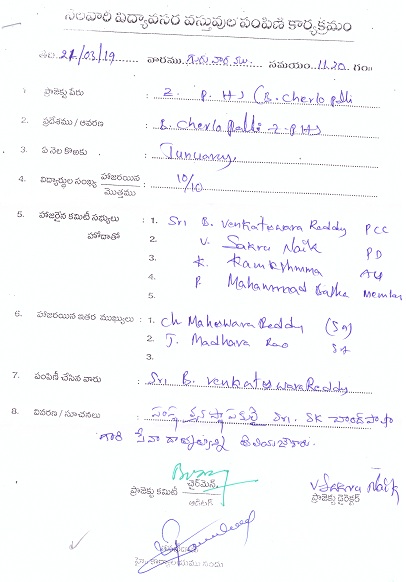 నెలవారి విద్యావసర వస్తువుల పంపిణి కార్యక్రమం
తేది 21/03/19 వారము గురువారము సమయం 11.20 గం॥
1. ప్రాజెక్టు పేరు : Z. P. HS (B. cherlo palli
2. ప్రదేశము / ఆవరణ : B. cherlo palli Z. P HS
3. ఏ నెల కొఱకు : January
4. విద్యార్ధుల సంఖ్య హాజరయిన / మొత్తము : 10/10
5. హాజరైన కమిటీ సభ్యులు : 1. Sri B. Venkateswara Reddy PCC
హోదాతో 2. V. Sakru Naik PD
3. K.
4. P. Mahammad Member
5.
6. హాజరయిన ఇతర ముఖ్యులు : 1. Ch Maheswara Reddy (SA)
2. T. Madhava Rao SA
3.
7. పంపిణీ చేసిన వారు : Sri B. Venkateswara Reddy
8. వివరణ / సూచనలు : సంస్థ వ్యవస్థాపకులై Sri. SK చాంద్ పాషా
గారి సేవా కార్యక్రమాన్ని
ప్రాజెక్టు కమిటీ చైర్మెన్
ఆడిటర్
V. Sakru Naik
ప్రాజెక్టు డైరెక్టర్